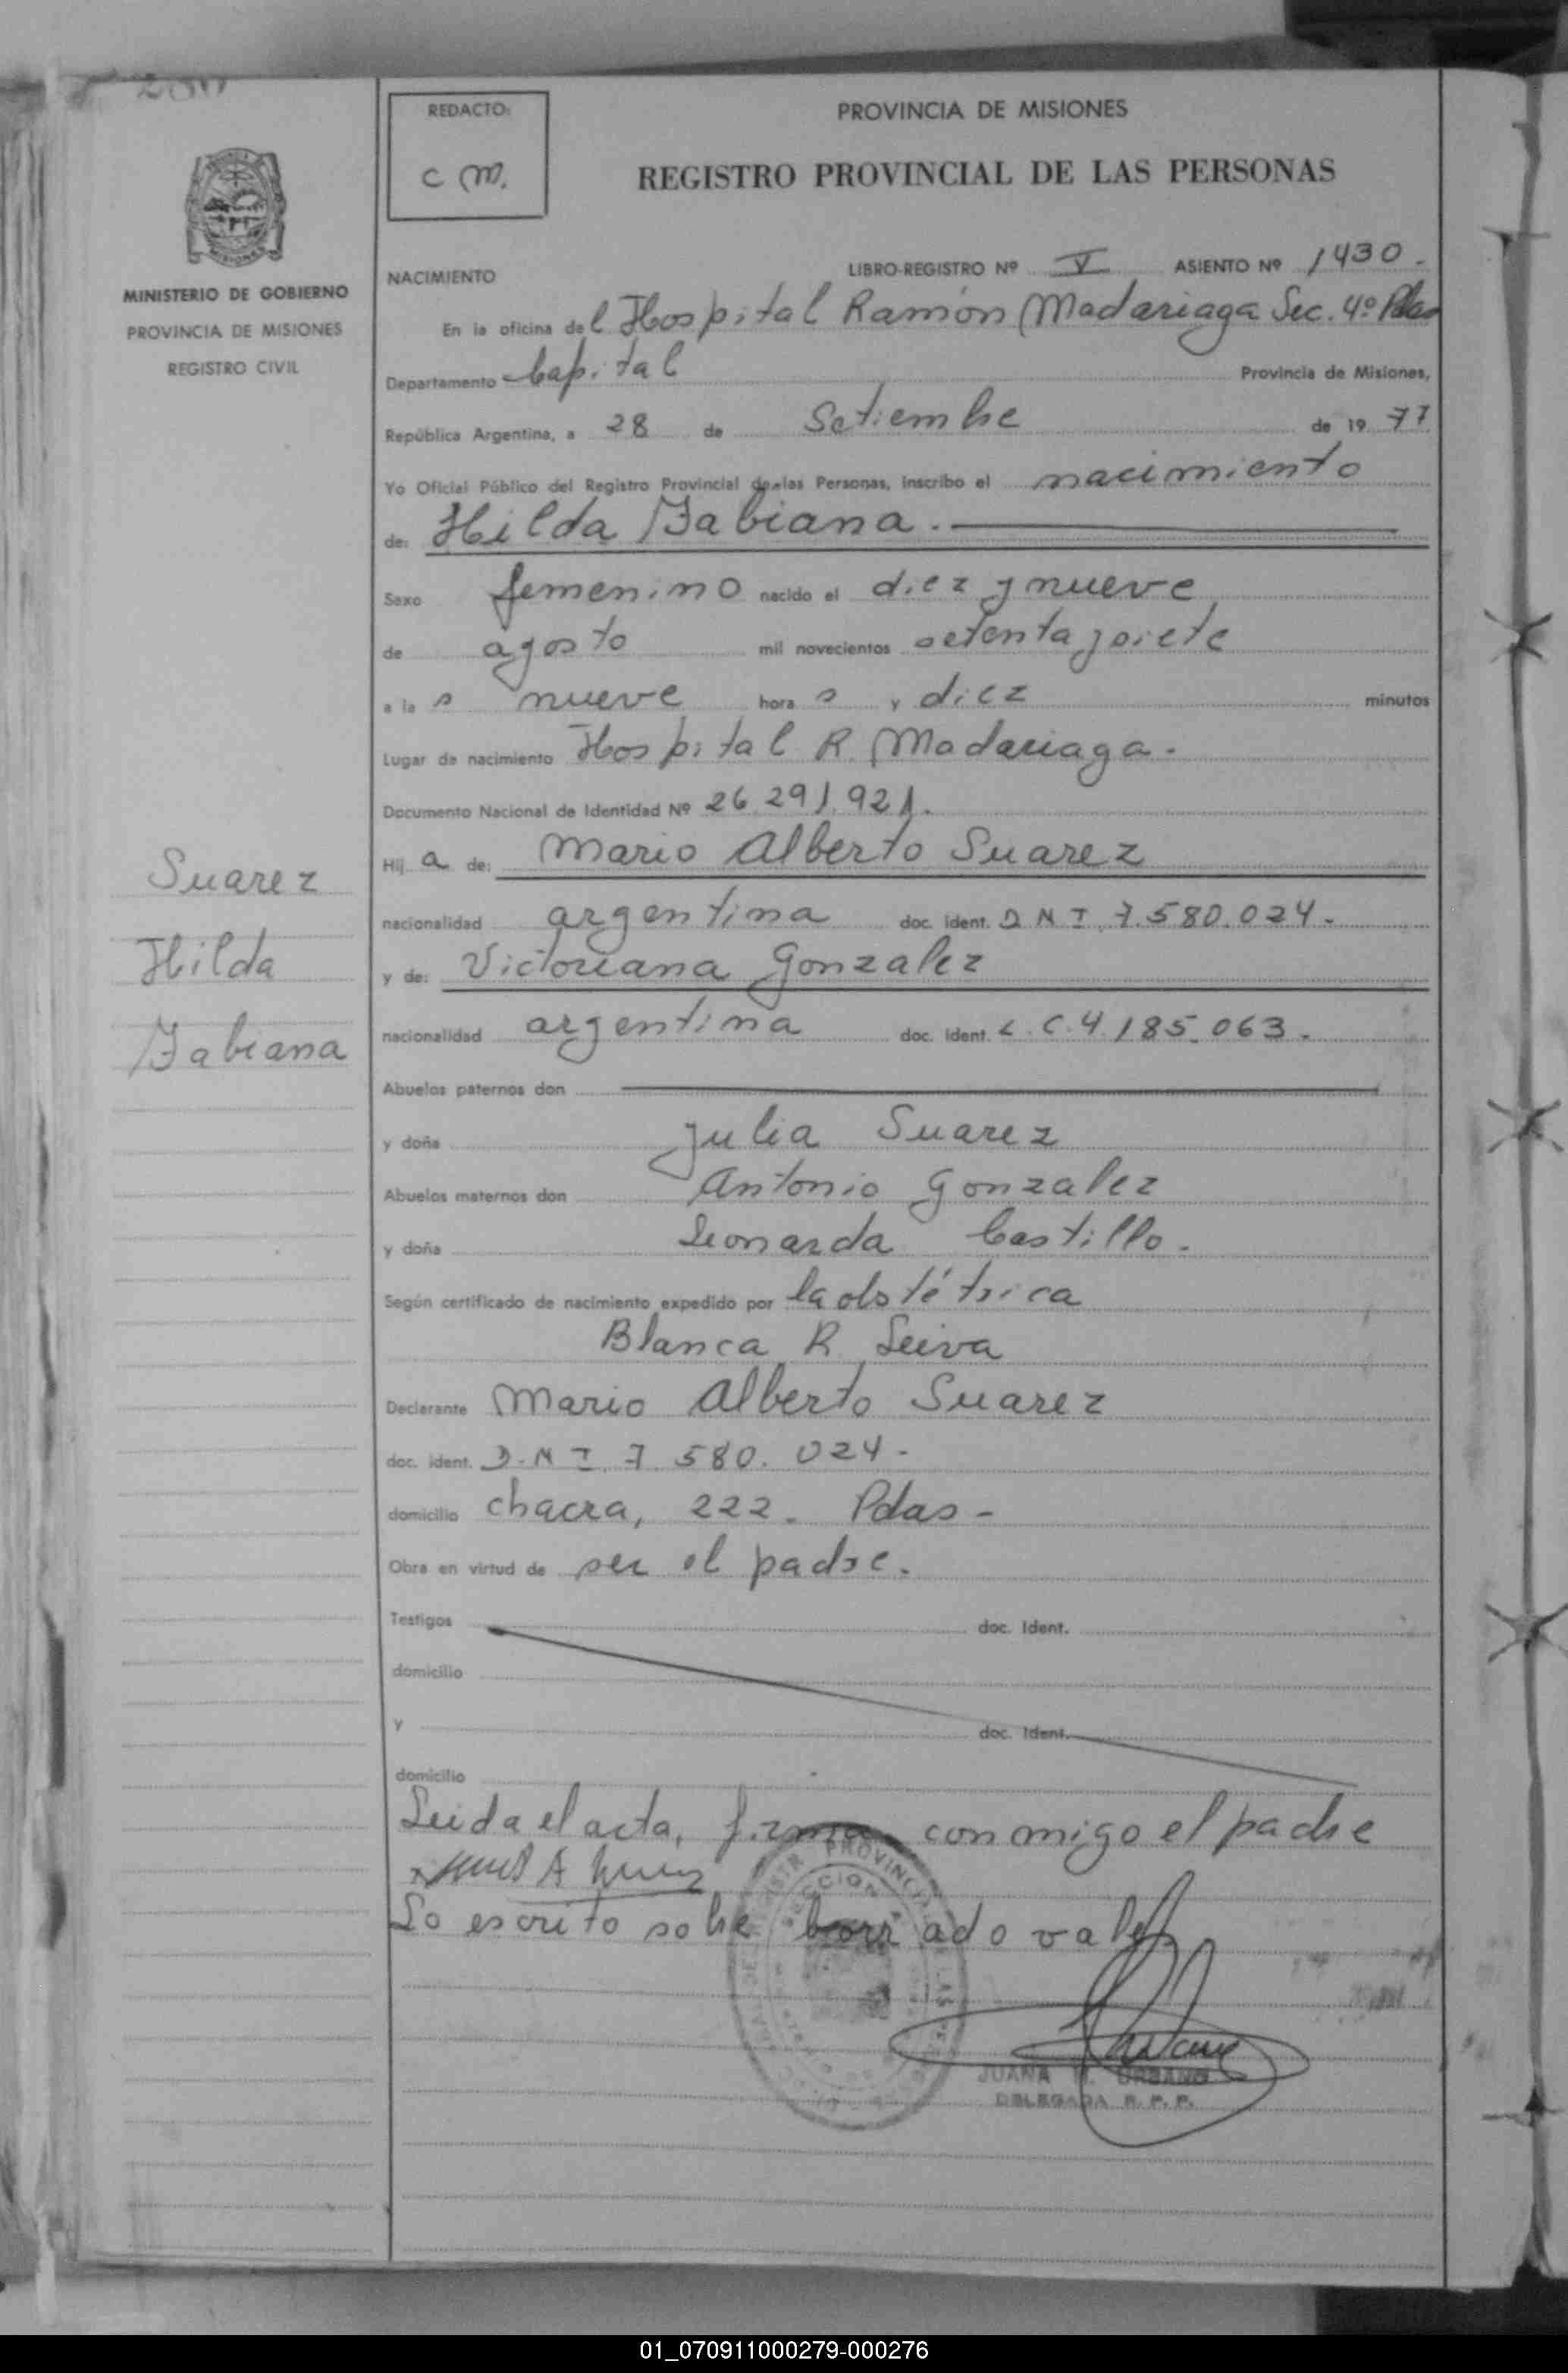 REDACTO:
C M.
PROVINCIA DE MISIONES
REGISTRO PROVINCIAL DE LAS PERSONAS
MISIONES
MINISTERIO DE GOBIERNO
PROVINCIA DE MISIONES
REGISTRO CIVIL
NACIMIENTO
LIBRO-REGISTRO Nº V ASIENTO Nº 1430.
En la oficina del Hospital Ramón Madariaga Sec. 4º Pdas
Departamento Capital Provincia de Misiones,
República Argentina, a 28 de Setiembre de 19 77
Yo Oficial Público del Registro Provincial de las Personas, inscribo el nacimiento
de: Hilda Fabiana.
Sexo femenino nacido el diez y nueve
de agosto mil novecientos setenta y siete
a la s nueve hora s y diez minutos
Lugar de nacimiento Hospital R. Madariaga.
Documento Nacional de Identidad Nº 26.291.921.
Hij a de: Mario Alberto Suarez
nacionalidad argentina doc. ident. D N I 7.580.024.
y de: Victoriana Gonzalez
nacionalidad argentina doc. ident. L.C. 4.185.063.
Abuelos paternos don
y doña Julia Suarez
Abuelos maternos don Antonio Gonzalez
y doña Leonarda Castillo.
Según certificado de nacimiento expedido por la obstétrica
Blanca R. Leiva
Declarante Mario Alberto Suarez
doc. ident. D.N I. 7 580. 024-
domicilio chacra, 222. Pdas-
Obra en virtud de ser el padre.
Testigos doc. Ident.
domicilio
y doc. Ident.
domicilio
Leida el acta, firma conmigo el padre
Lo escrito sobre borrado vale
JUANA URBANO
DELEGADA R. P. P.
Suarez
Hilda
Fabiana
01_070911000279-000276